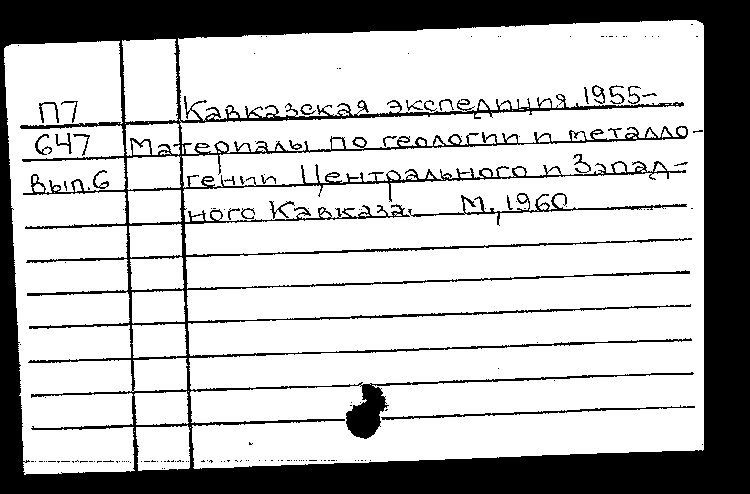 П7 Кавказская экспедиция. 1955-
647 Материалы по геологии и металло-
Вып.6 гении Центрального и Запад-
ного Кавказа. М., 1960